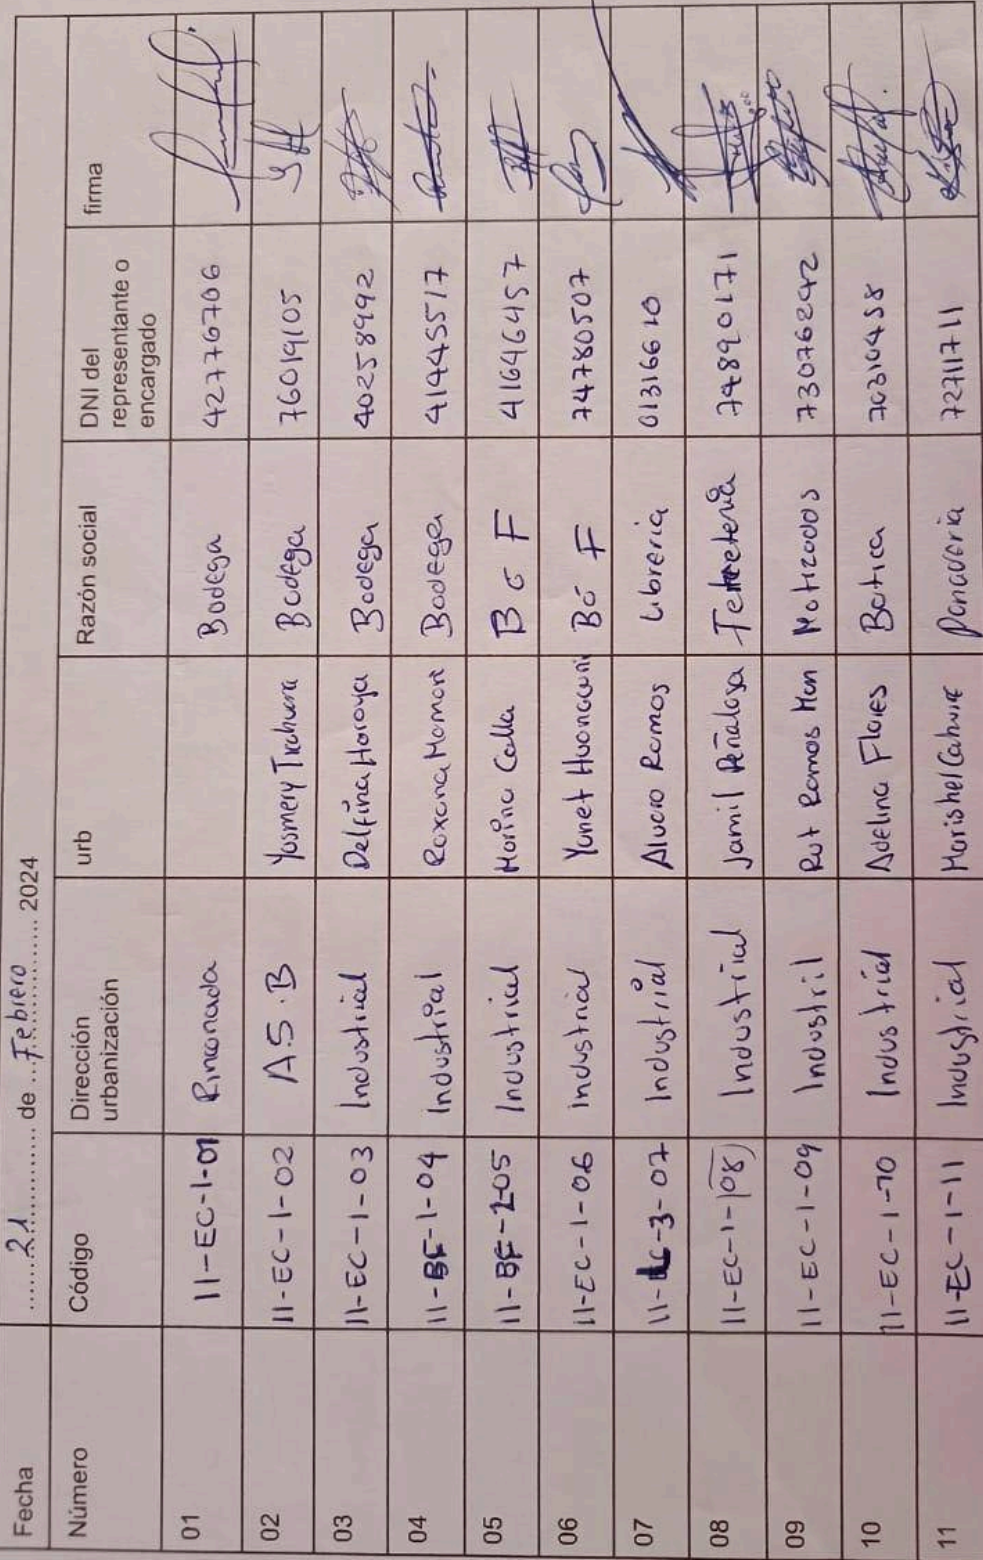 Fecha ......21............ de ...Febrero............ 2024
Número Código Dirección urbanización urb Razón social DNI del representante o encargado firma
01 11-EC-1-01 Rinconada Bodega 42776706
02 11-EC-1-02 A.S.B Yosmery Trahura Bodega 76019105
03 11-EC-1-03 Industrial Delfina Horoya Bodega 40258992
04 11-BF-1-04 Industrial Roxana Momon Bodega 41445517
05 11-BF-1-05 Industrial Marina Calla B o F 41646457
06 11-EC-1-06 industrial Yunet Huancuni Bo F 74780507
07 11- -3-07 Industrial Alvaro Ramos Libreria 01316610
08 11-EC-1-(08) Industrial Jamil Peñaloza 74890171
09 11-EC-1-09 Industril Rut Ramos Mon 73076242
10 11-EC-1-10 Industrial Adelina Flores Botica 70310458
11 11-EC-1-11 Industrial Marishel Cahure Panaderia 72711711